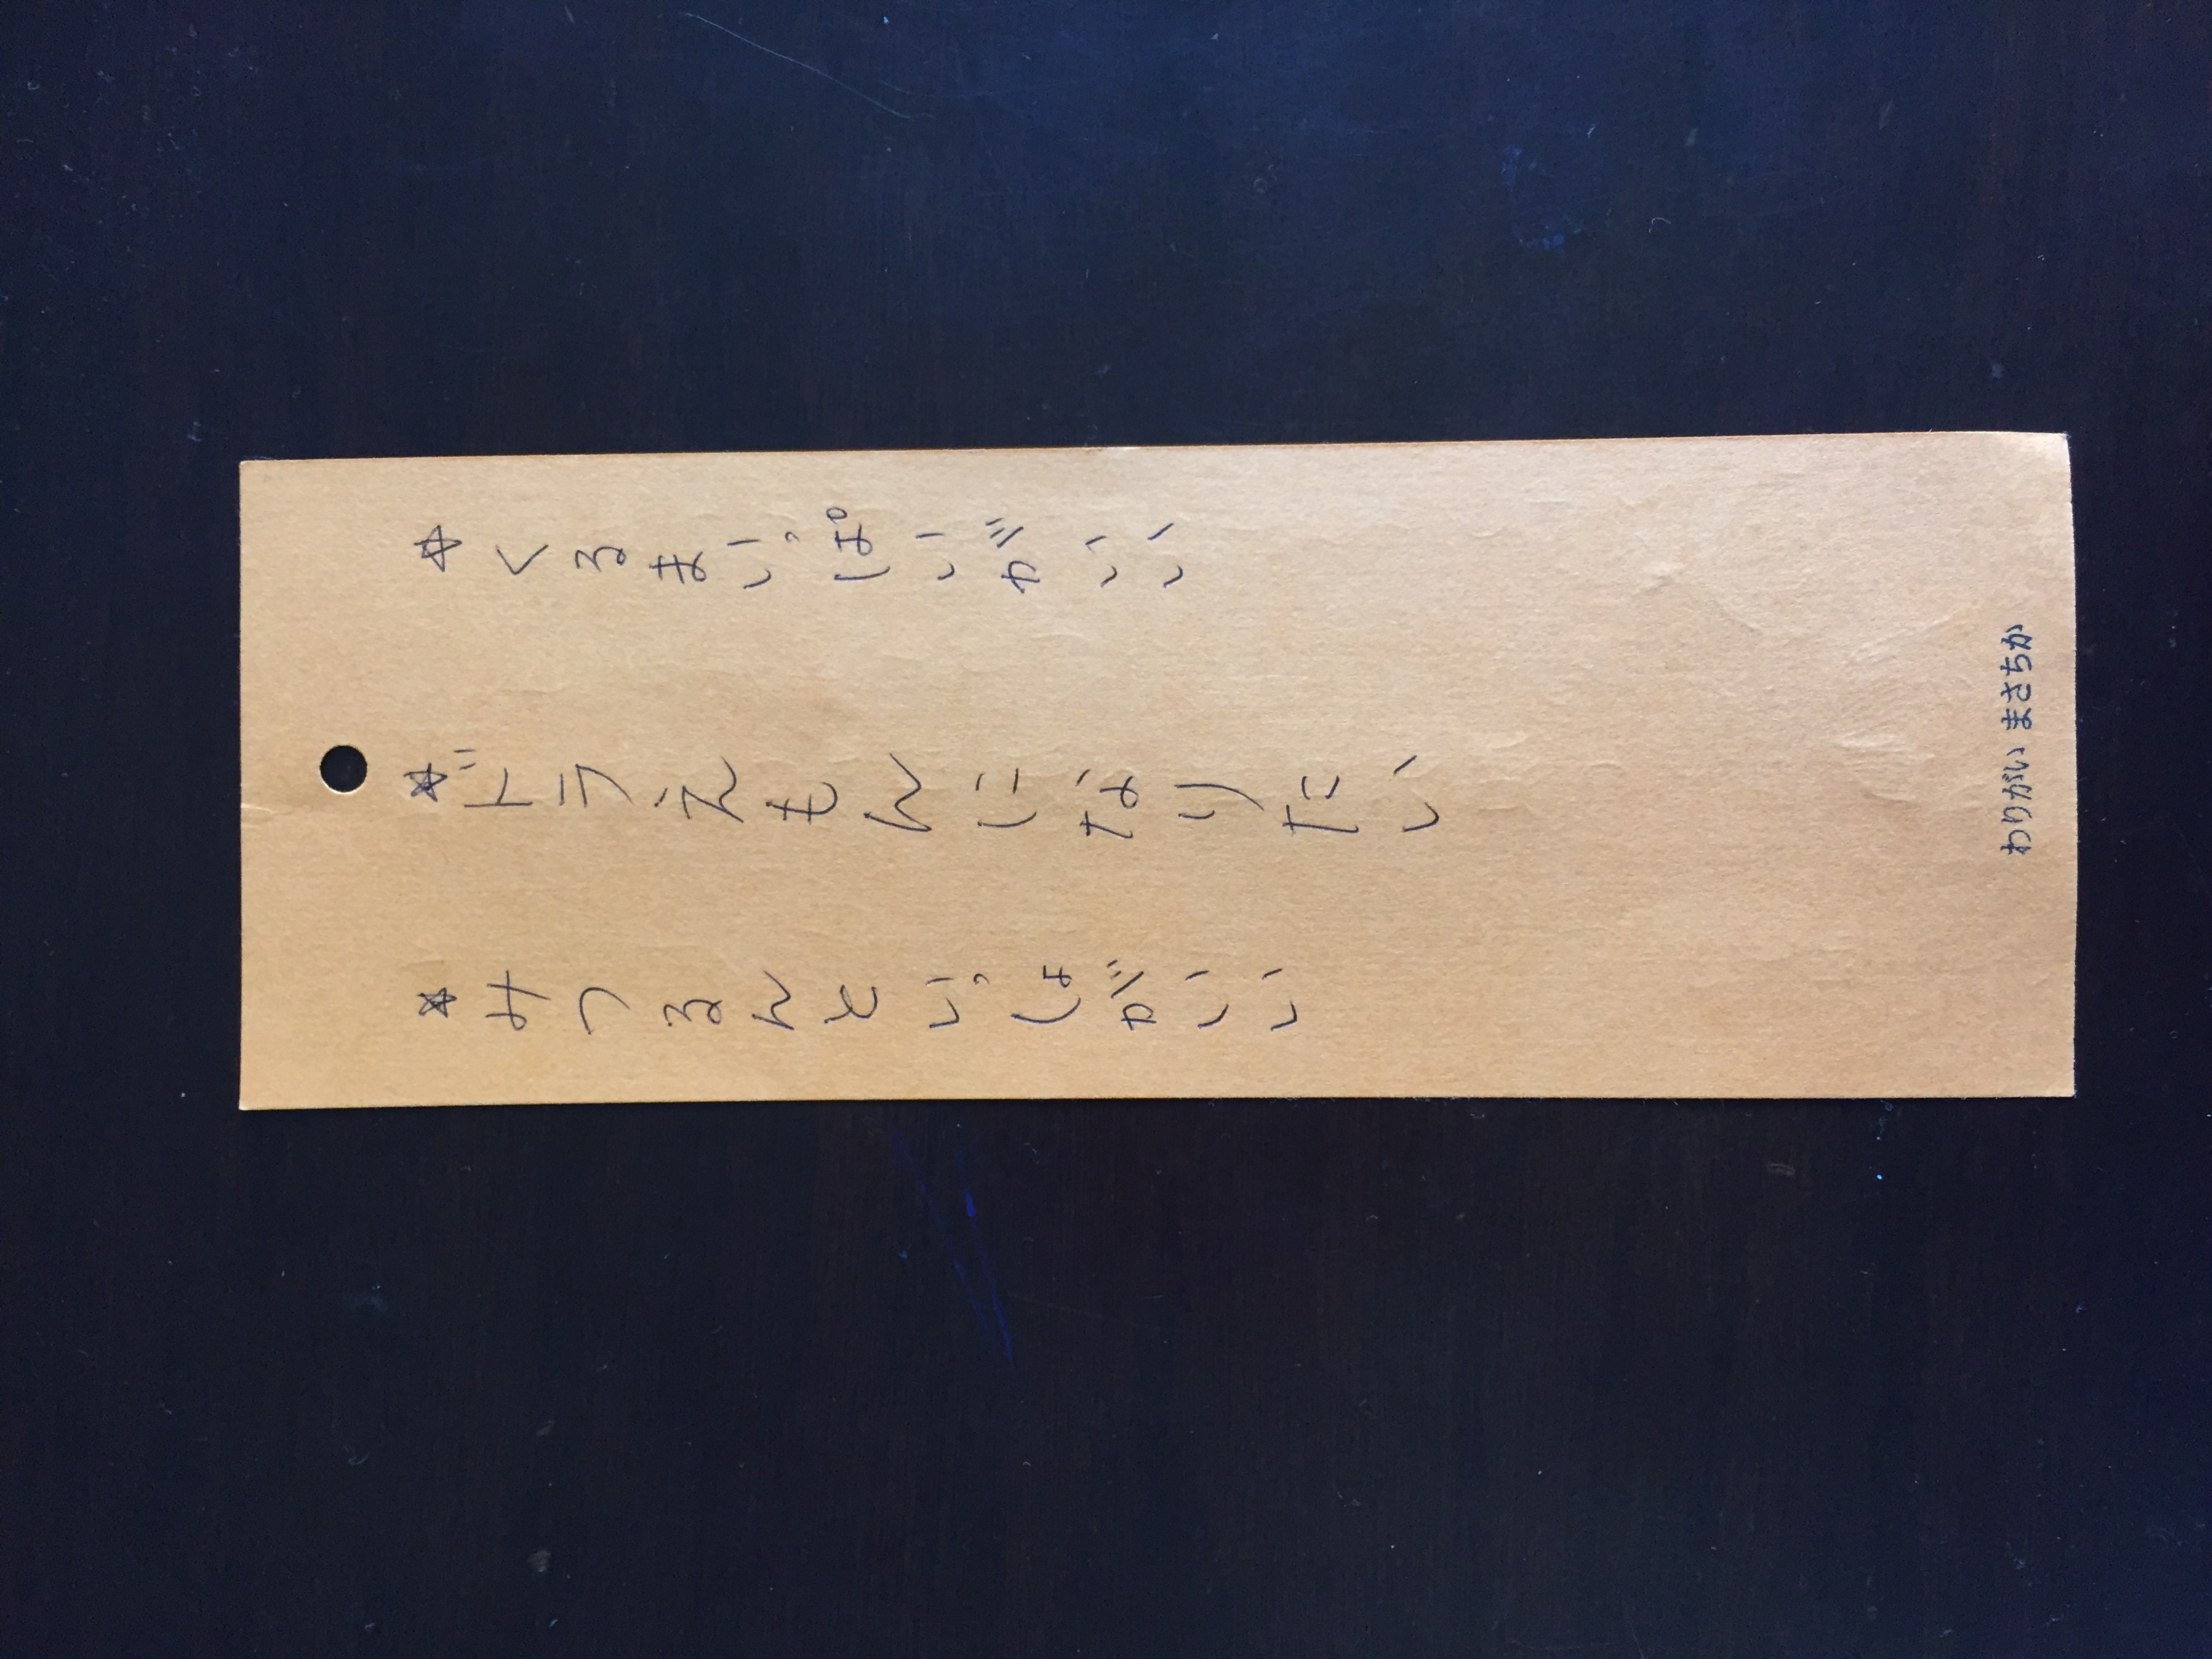 ☆くるまいっぱいがいい
☆ドラえもんになりたい
☆みつるんといっしょがいい
わりがい まさちか